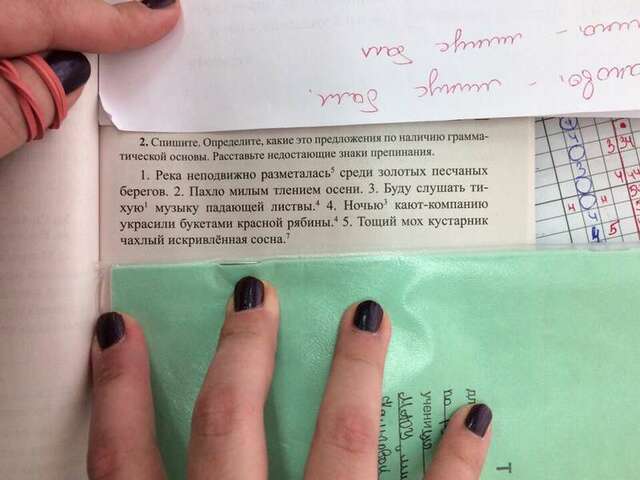 2. Спишите. Определите, какие это предложения по наличию грамма-
тической основы. Расставьте недостающие знаки препинания.
1. Река неподвижно разметалась⁵ среди золотых песчаных
берегов. 2. Пахло милым тлением осени. 3. Буду слушать ти-
хую¹ музыку падающей листвы.⁴ 4. Ночью³ кают-компанию
украсили букетами красной рябины.⁴ 5. Тощий мох кустарник
чахлый искривлённая сосна.⁷
минус балл
минус балл.
учени
Т